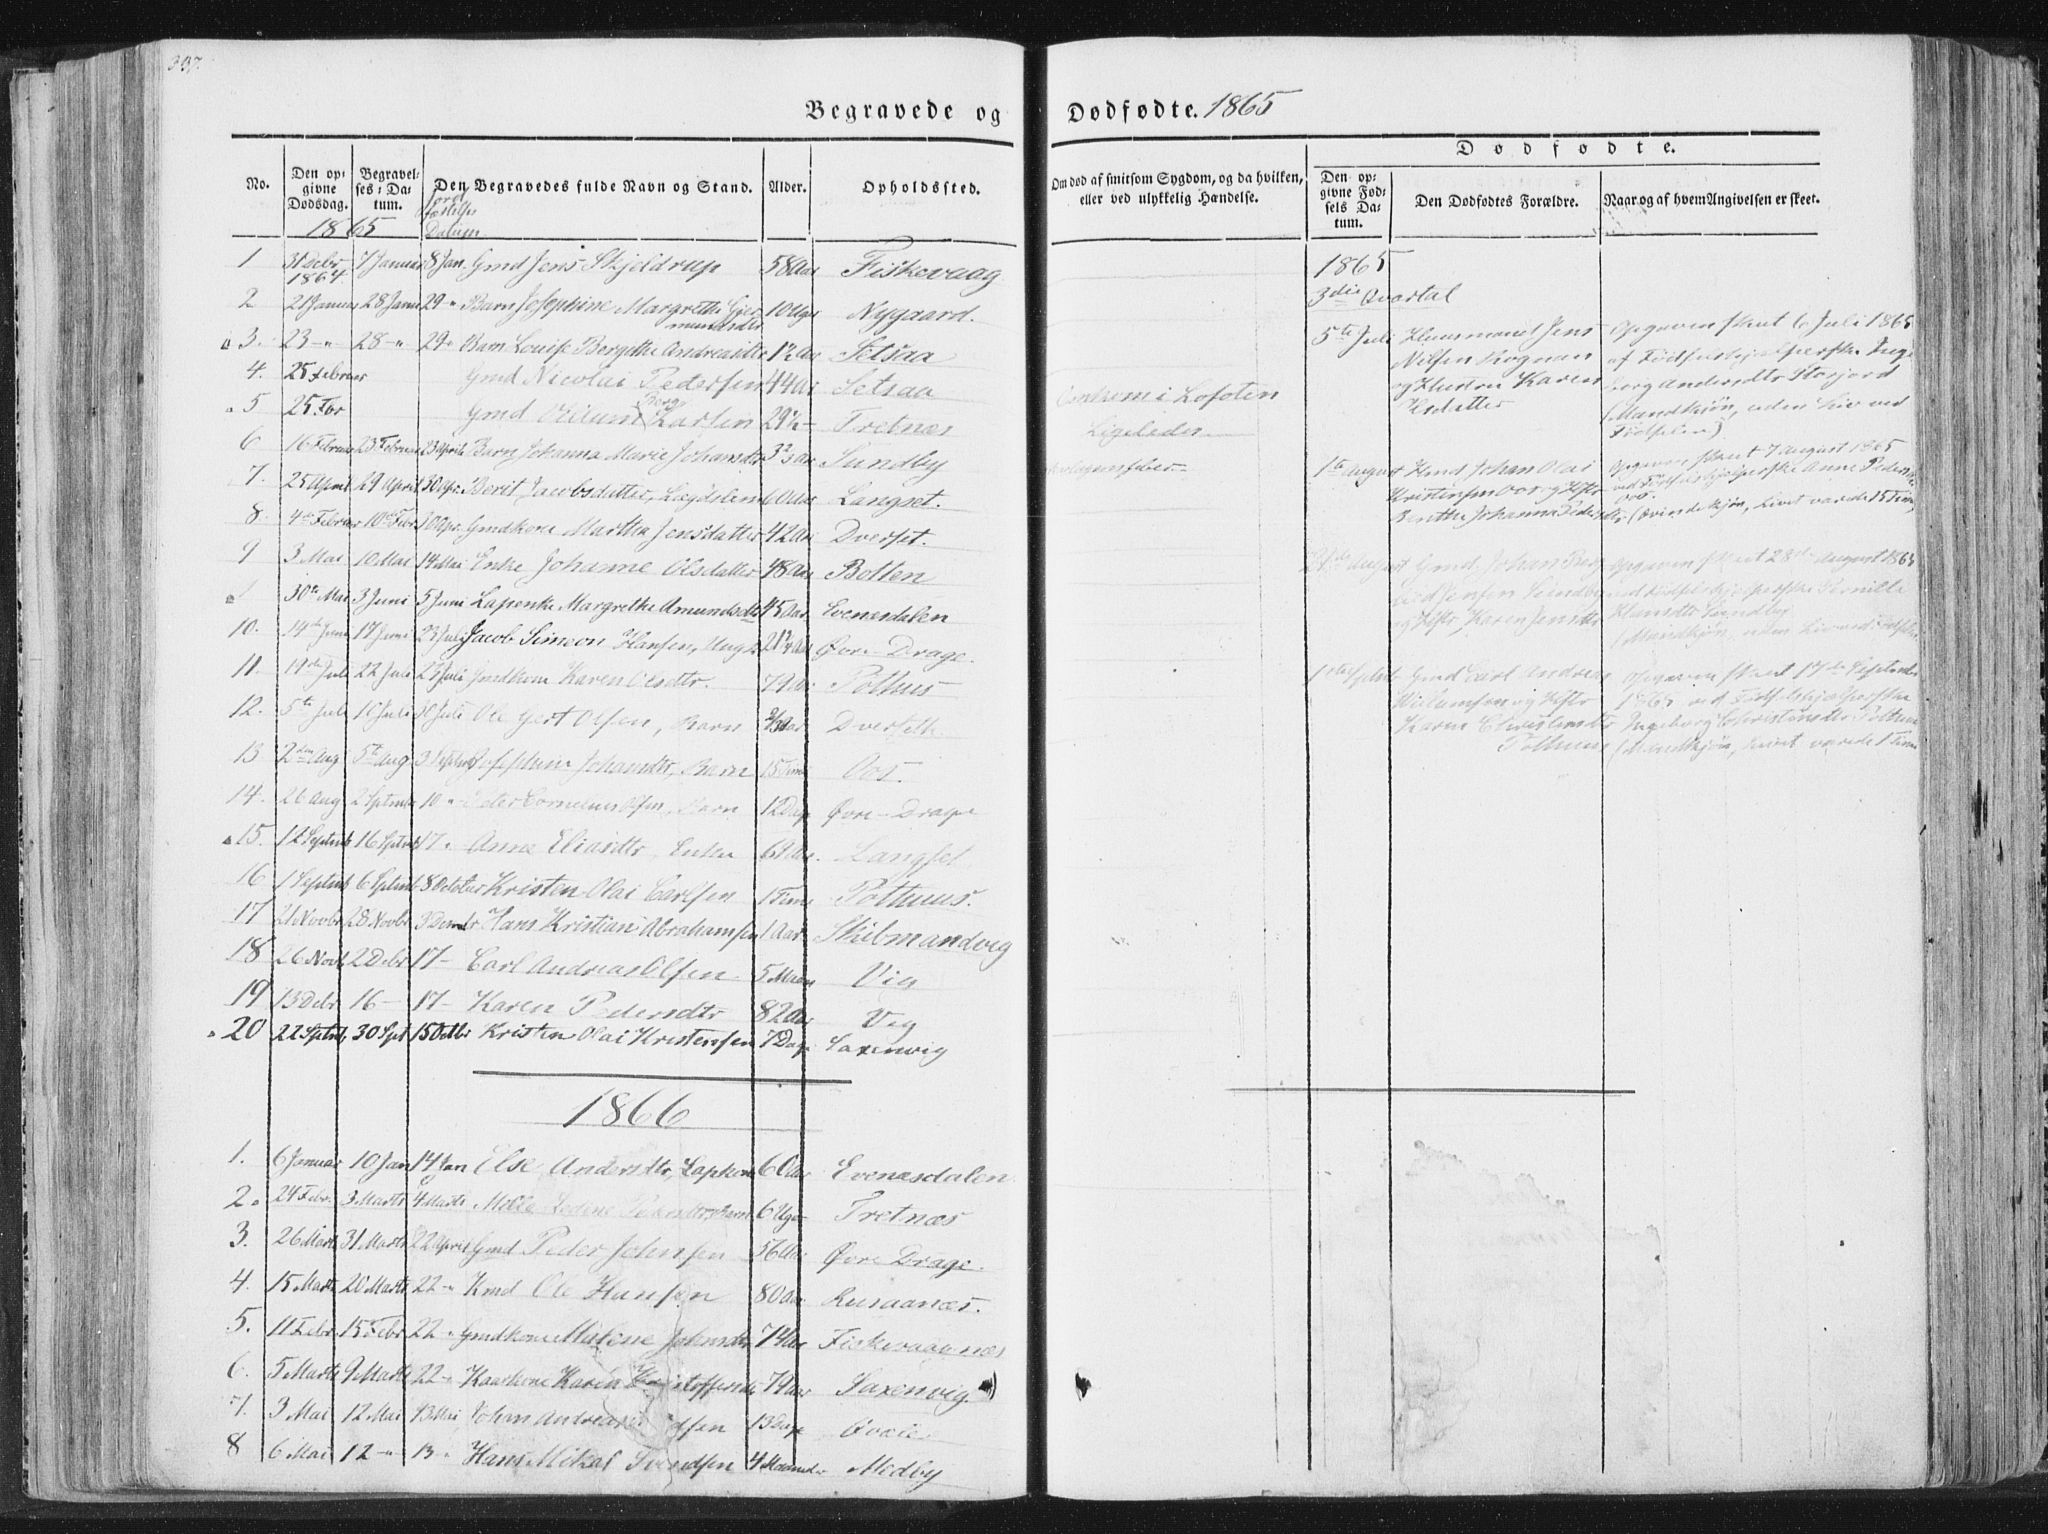 337.
Begravede og Dødfødte. 1865
No. Den opgivne Dødsdag. Begravelses-Datum. Jordfæstelses Datum Den Begravedes fulde Navn og Stand. Alder. Opholdssted.
Om død af smitsom Sygdom, og da hvilken, eller ved ulykkelig Hændelse.
Dødfødte.
Den opgivne Fødsels Datum. Den Dødfødtes Forældre. Naar og af hvem Angivelsen er skeet.
1865
1 31 Debr 1864. 7 Januar 8 Jan. Gmd Jens Skjeldrup 58 Aar Fiskevaag
2 21 Januar 28 Janu 29 " Barn Josephine Margrethe 10 Uger Nygaard.
3. 23 -"- 28 -"- 29 " Barn Louise Bergithe Andreasdtr 1½ Aar Setsaa
4. 25 Februar Gmd Nicolai Pedersen 44 Aar Setsaa Omkom i Lofoten
5 25 Fbr Gmd Berg Larsen 29½ - Tretnæs Ligeledes
6 16 Februar 23 Februar 23 April Barn Johanna Marie Johansdtr 3 Aar Sundby
7. 25 April 29 April 30 Apr. Berit Jacobsdatter, Lægdslem 60 Aar Langset.
8. 4de Februar 10de Febr 30 Apr. Gmdkone Martha Jensdatter 42 Aar Dverset.
9 3 Mai 10 Mai 14 Mai Enke Johanne Olsdatter 48 Aar Botten
30te Mai 3 Juni 5 Juni Lapenke Margrethe Amundsdtr 45 Aar Evenesdalen
10. 14de Juni 17 Juni 23 Juli Jacob Simeon Hansen, Ungk 21 Aar Øvre-Drage.
11. 19de Juli 22 Juli 23 Juli Gmdkone Karen Olsdtr. 79 Aar Pothus
12. 5te Juli 10 Juli 30 Juli Ole Gert Olsen, Barn Aar Dverseth
13 2den Aug 5te Aug 3 Septbr Josephine Johansdtr, Barn 15 Time Oos.
14. 26 Aug 2 Septmbr 10 " Peter Cornelius Olsen, Barn 12 Dage Øvre-Drage
15. 12 Septmb 16 Septmb 17 " Anne Eliasdtr, Enke 69 Aar. Langset
16 1 Septmb 6 Septmb 8 October Kristen Olai Carlsen 1 Time Pothuus.
17 21 Novbr 28 Novbr 3 Decmbr Hans Kristian Abrahamsen 1 Aar Skibmandvig
18 26 Novb. 2 Debr 17 - Carl Andreas Olsen 5 Maan Vig
19 13 Debr 16 - 17 - Karen Pedersdtr 82 Aar Vig
20 22 Septmb, 30 Spt 15 Octbr Kristen Olai Kristensen 7 Dage Saxenvig
1866
1. 6 Januar 10 Jan 14 Jan Else Andersdtr, Lapkone 60 Aar Evenesdalen.
2. 24 Febr. 3 Marts 4 Marts Barn 6 Uger Tretnæs
3. 26 Marts 31 Marts 22 April Gmd Peder Johnsen 56 Aar Øvre Drage.
4. 15 Marts 20 Marts 22 -"- Kmd Ole Hansen 80 Aar Rusaanæs.
5. 11 Febr 15 Febr 22 " Gmdkone Malene Johnsdtr 74 Aar Fiskevaagnæs
6. 5 Marts 9 Marts 22 -"- Kaarkone Karen Kristoffersdtr 79 Aar Saxenvig.
7. 3 Mai 12 Mai 13 Mai Johan Andreas 13 Dage
8 6 Mai 12 -"- 13 " Hans Mikal Svendsen 4 Maaneder Medby
1865
3die Qvartal
5te Juli Huusmand Jens
Nilsen Rognan
og Hustru Karen
Opgaven skeet 6 Juli 1865
af Fødselshjelperske Inge
borg Andersdtr Storjord
(Mandkjøn, uden Liv ved
Fødselen)
1te August Kmd Johan Olai
Kristensen Oos og Hstr
Berithe Johanna Pedersdtr
Opgaven skeet 7 August 1865
ved Fødselshjelperske Anne Peders
Oos.
(Qvindekjøn, Livet varede 15 Timer)
August Gmd Johan
Jensen Sundby
og Hstr, Karen Jensdtr
Opgaven skeet 28de August 1865
ved Fødselshjelperske Pernille
Hansdtr Sundby
(Mandkjøn, uden Liv ved Fødselen
1ste Septbr Gmd Carl Andreas
Willumsen og Hstr
Karen Christensdtr
Pothuus
Opgaven skeet 17de Septmber
1865 ved Fødselshjelperske
Ingeborg Christensdtr Pothuus
(Mandkjøn, Livet varede 1 Time